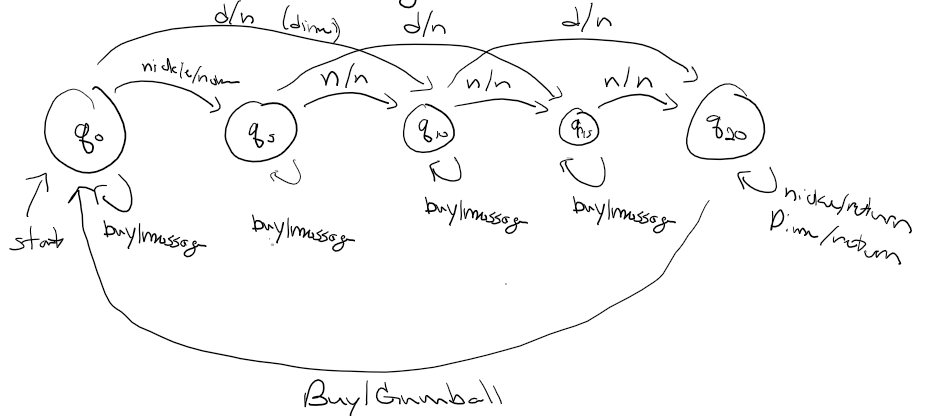 d/n (dime)
d/n
d/n
nickle/num
n/n
n/n
n/n
q0
q5
q10
q15
q20
start
buy/message
buy/message
buy/message
buy/message
nickle/return
Dime/return
Buy/Gumball